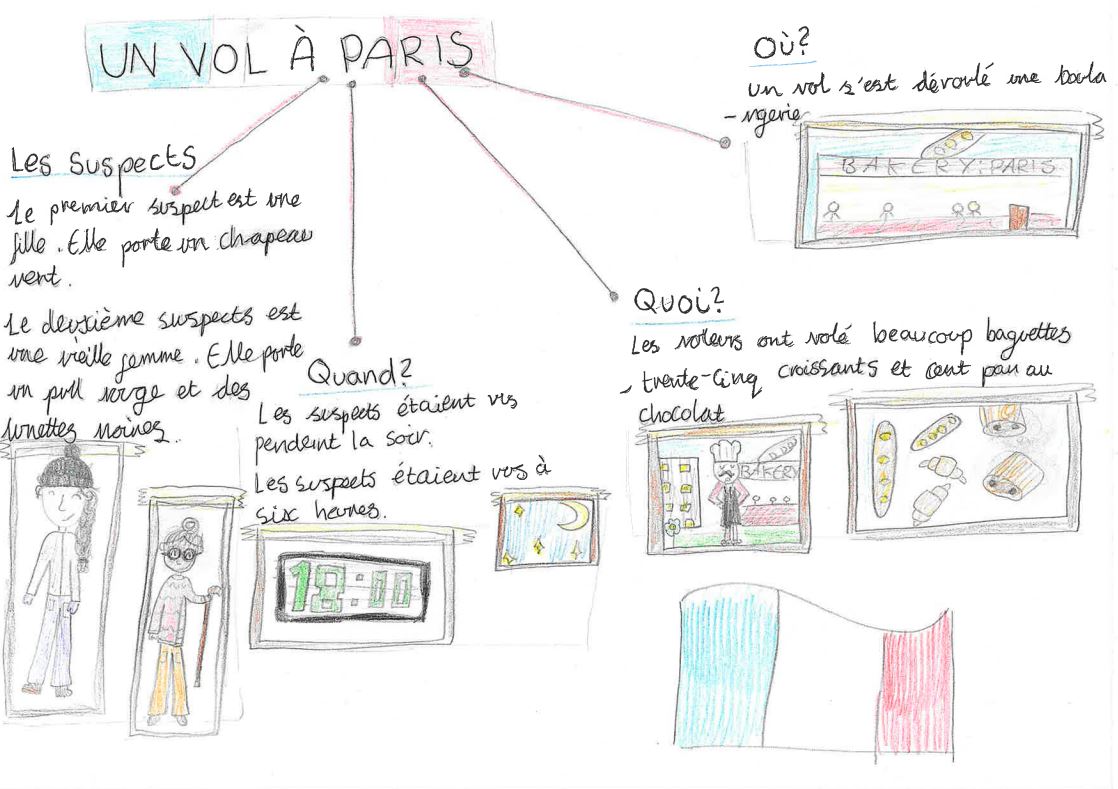 UN VOL À PARIS
Où?
un vol s'est dévroulé une boula
-ngerie
BAKERY:PARIS
Les suspects
Le premier suspect est une
fille. Elle porte un chapeau
vert.
Le deuxième suspects est
une vieille femme. Elle porte
un pull rouge et des
lunettes noires.
Quand?
Les suspects étaient vus
pendant la soir.
Les suspects étaient vus à
six heures.
18:00
Quoi?
Les voleurs ont volé beaucoup baguettes
, trente-cinq croissants et cent pan au
chocolat
BAKERY